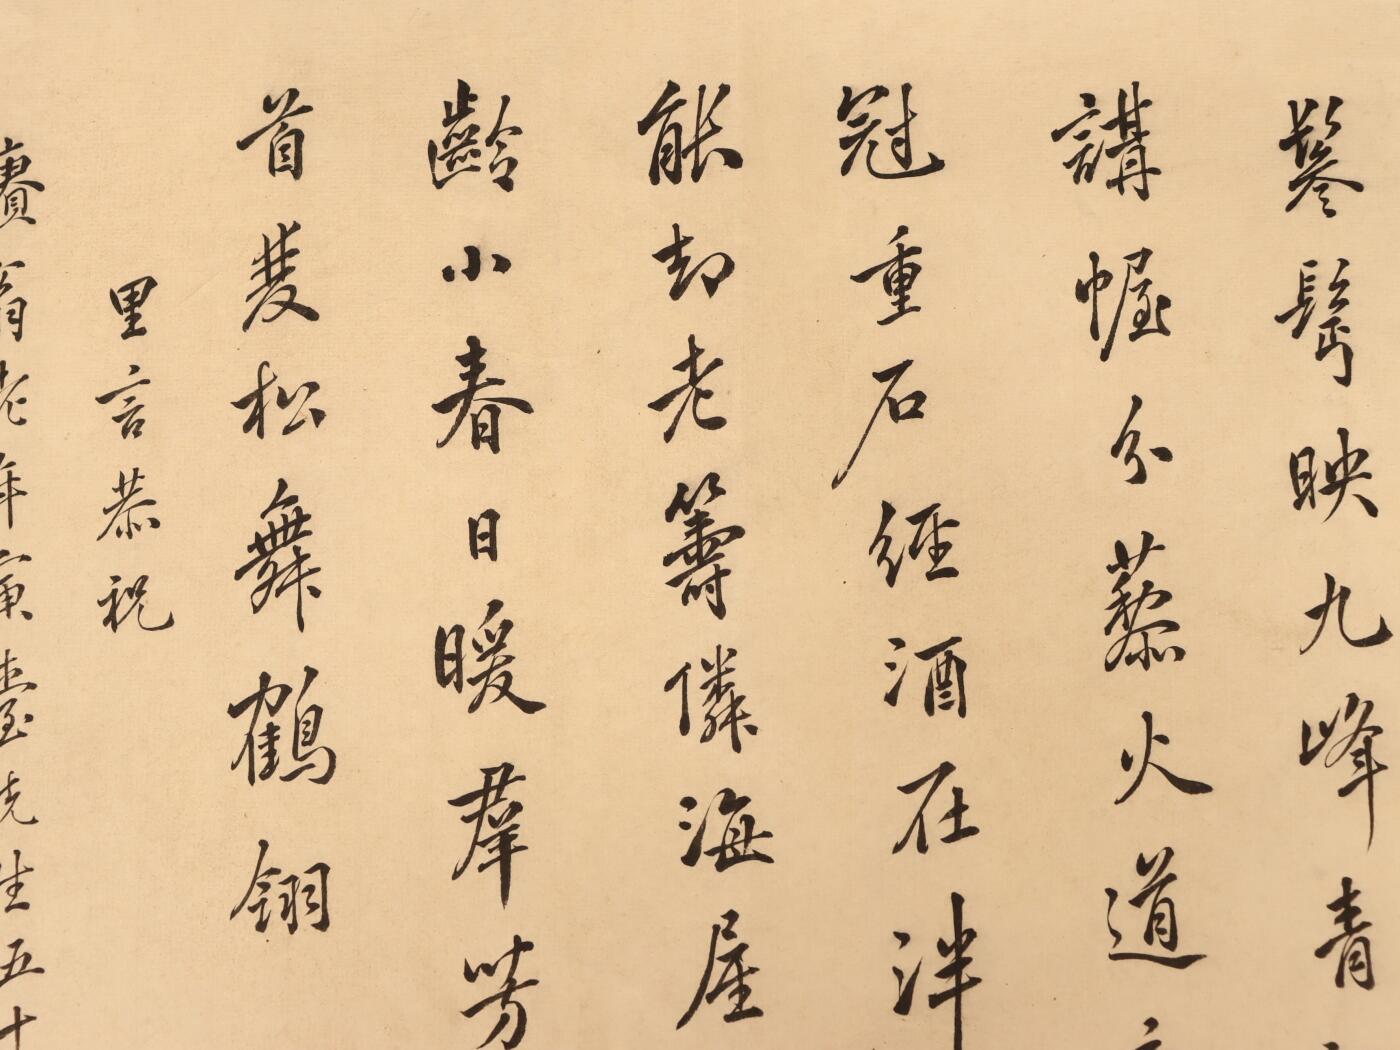 鬖髩映九峰青
講幄分藜火道
冠重石經酒在泮
能却老籌憐海屋
齡小春日暖羣芳
首雙松舞鶴翎
里言恭祝
賡翁老年寅臺先生五十